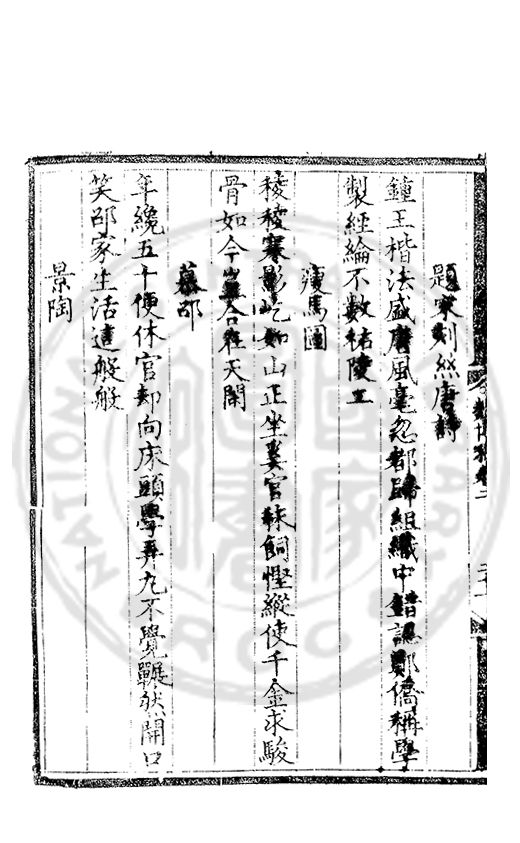 題宋刻絲唐詩
鍾王楷法盛唐風毫忽都歸組織中錯認鄭僑稱學
製經綸不數祐陵工
瘦馬圖
稜稜寒影屹如山正坐奚官秣飼慳縱使千金求駿
骨如今豈合在天閑
慕邵
年纔五十便休官却向床頭學弄丸不覺囅然開口
笑邵家生活這般般
景陶